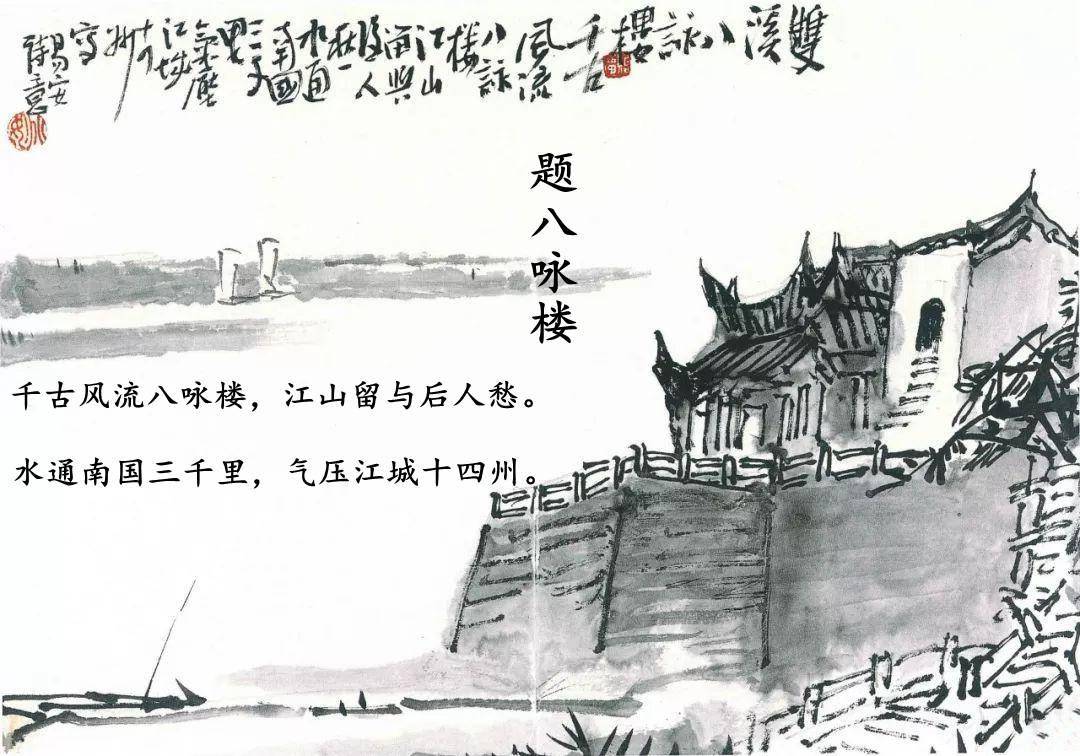 雙溪八詠樓
千古
風流
八詠
樓
江山
留與
後人
愁
水通
南國
三千
里
氣壓
江城
十四
州
寫
易安
詩意
题八咏楼
千古风流八咏楼，江山留与后人愁。
水通南国三千里，气压江城十四州。